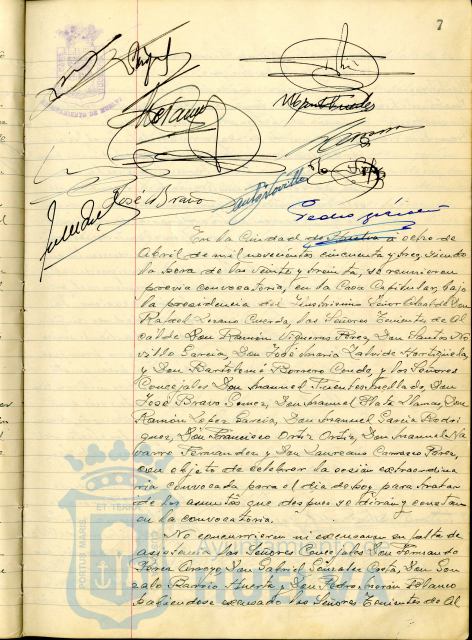 7
AYUNTAMIENTO DE HUELVA
José Bravo
Santos Novillo
Pedro
En la Ciudad de Huelva a ocho de
Abril de mil novecientos cincuenta y tres, siendo
la hora de las veinte y treinta, se reunieron
previa convocatoria, en la Casa Capitular, bajo
la presidencia del Ilustrísimo Señor Alcalde Don
Rafael Lozano Cuerda, los Señores Tenientes de Al
calde Don Ramón Vigueras Pérez, Don Santos No
villo García, Don José María Zalvide Hortigüela,
y Don Bartolomé Borrero Conde, y los Señores
Concejales Don Manuel Fuentes Mellado, Don
José Bravo Gomez, Don Manuel Plata Llanes, Don
Ramón Lopez García, Don Manuel García Rodri
guez, Don Francisco Ortiz Ortiz, Don Manuel Na
varro Fernandez y Don Laureano Carrasco Pérez,
con objeto de celebrar la sesión extraordina
ria convocada para el día de hoy para tratar
de los asuntos que despues se dirán y constan
en la convocatoria.
No concurrieron ni excusaron su falta de
asistencia los Señores Concejales Don Fernando
Pérez Arroyo, Don Gabriel Gonzalez Costa, Don Gon
zalo Barrio Huerta y Don Pedro Morón Blanco
habiendose excusado los Señores Tenientes de Al
PORTUS MARIS ET TERRAE
Ayuntamiento de
Huelva